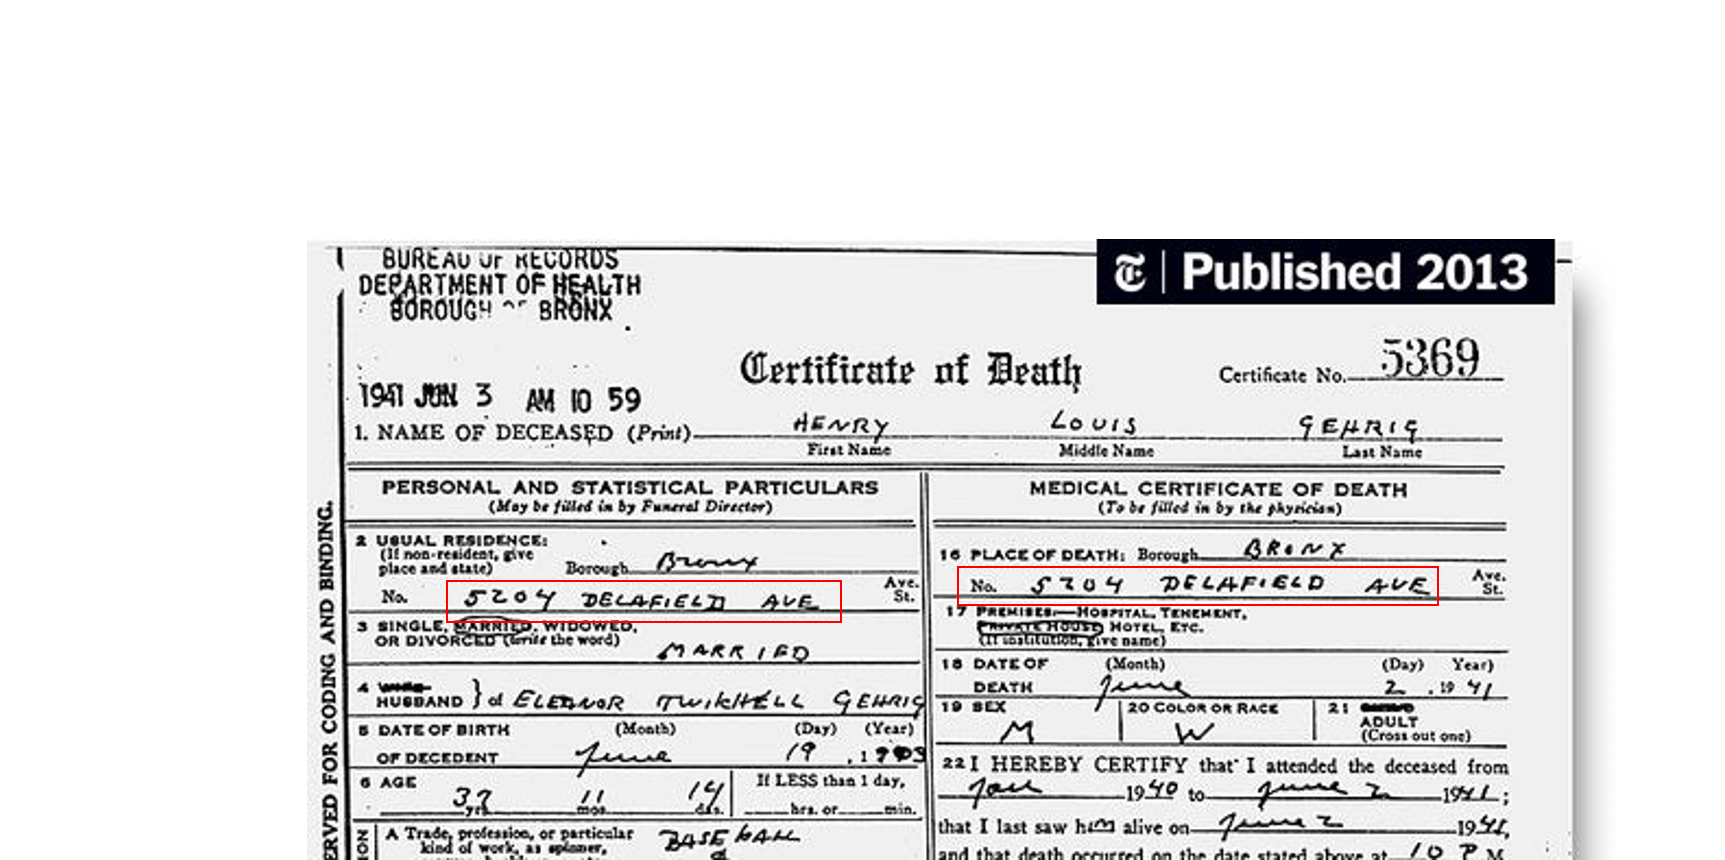 BUREAU OF RECORDS
DEPARTMENT OF HEALTH
BOROUGH OF BRONX
T | Published 2013
Certificate of Death
Certificate No. 5369
1941 JUN 3 AM 10 59
1. NAME OF DECEASED (Print) HENRY LOUIS GEHRIG
First Name Middle Name Last Name
ERVED FOR CODING AND BINDING.
PERSONAL AND STATISTICAL PARTICULARS
(May be filled in by Funeral Director)
2 USUAL RESIDENCE:
(If non-resident, give
place and state) Borough Bronx
No. 5204 DELAFIELD AVE Ave. St.
3 SINGLE, MARRIED, WIDOWED,
OR DIVORCED (write the word) MARRIED
4 HUSBAND } of ELEANOR TWIKHELL GEHRIG
5 DATE OF BIRTH (Month) (Day) (Year)
OF DECEDENT June 19, 1903
6 AGE If LESS than 1 day,
37 yrs. 11 mos. 14 ds. hrs. or min.
A Trade, profession, or particular
kind of work, as spinner, BASEBALL
MEDICAL CERTIFICATE OF DEATH
(To be filled in by the physician)
16 PLACE OF DEATH: Borough BRONX
No. 5204 DELAFIELD AVE Ave. St.
17 PREMISES—HOSPITAL, TENEMENT,
PRIVATE HOUSE, HOTEL, ETC.
(If institution, give name)
18 DATE OF (Month) (Day) Year)
DEATH June 2, 1941
19 SEX 20 COLOR OR RACE 21
M W ADULT
(Cross out one)
22 I HEREBY CERTIFY that I attended the deceased from
Jan 1940 to June 2 1941;
that I last saw him alive on June 2 1941,
and that death occurred on the date stated above at 10 P M